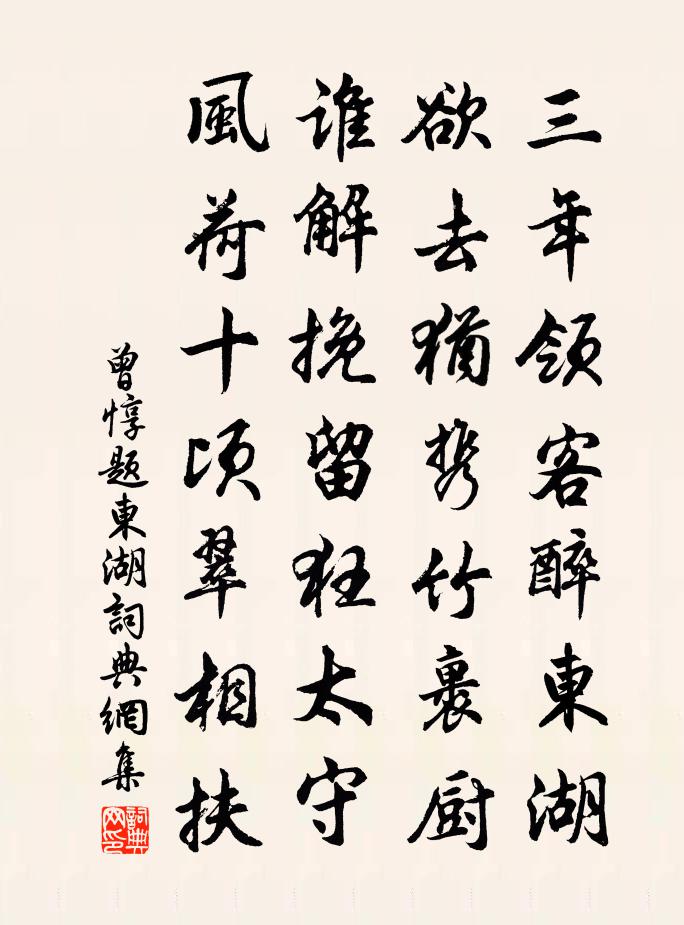 三年領客醉東湖
欲去猶携竹裹厨
誰解挽留狂太守
風荷十頃翠相扶
曾惇題東湖詞典網集
詞典网印